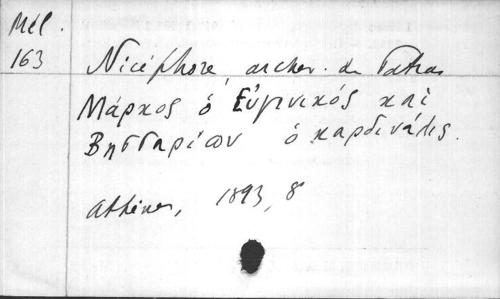 Mél.
163
Nicéphore, archev. de Patras
Μάρκος ὁ Εὐγενικός καὶ
Βησσαρίων ὁ καρδινάλις.
Athènes, 1893, 8°